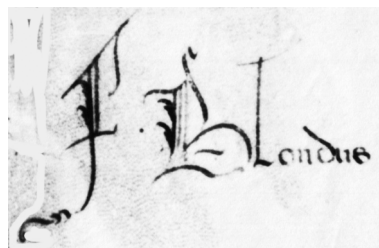 F. Blondus